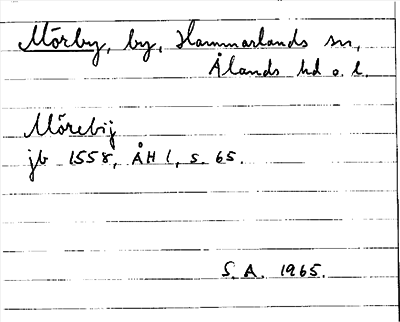 Mörby, by, Hammarlands sn,
Ålands hd o. l.
Mörebij
jb 1558, ÅH 1, s. 65.
S. A. 1965.